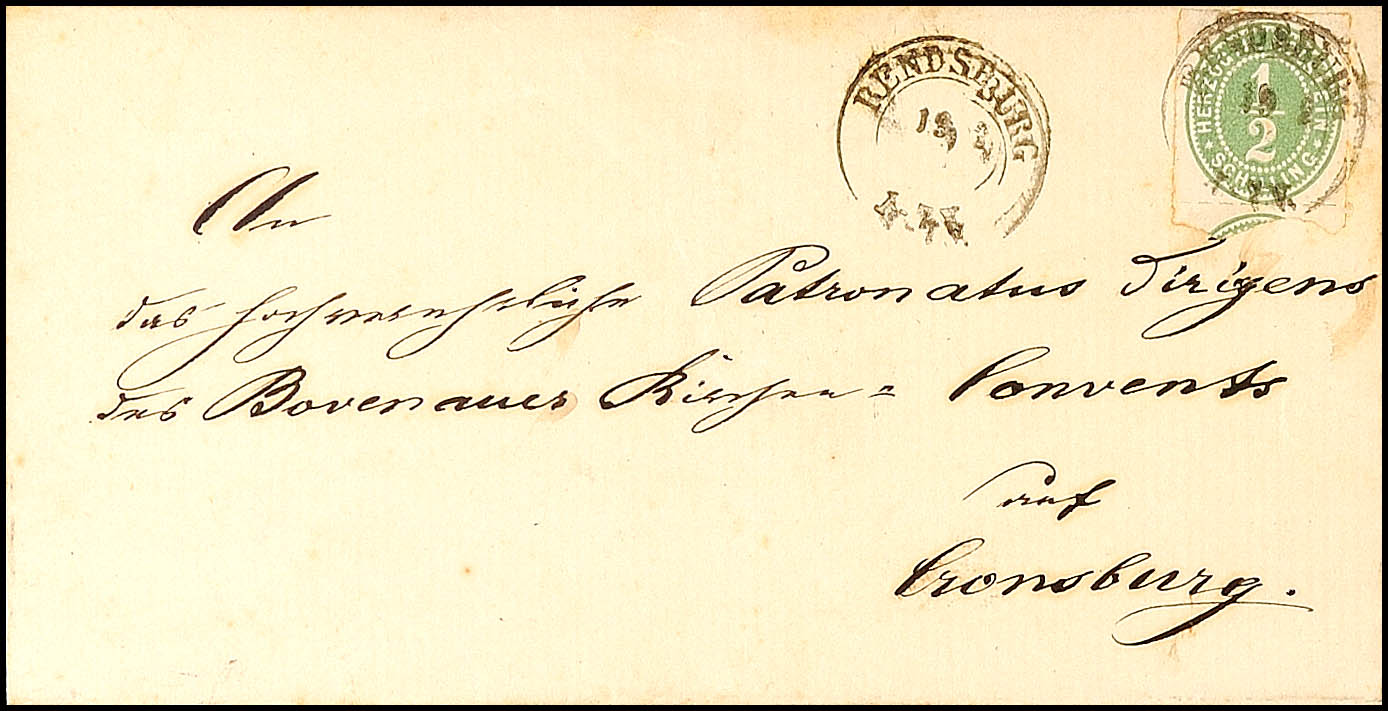 RENDSBURG
19 2
HERZOGTH. HOLSTEIN
1/2
SCHILLING
An
das hochverehrliche Patronatus Dirigens
des Bovenauer Kirchen= Convents
auf
Cronsburg.